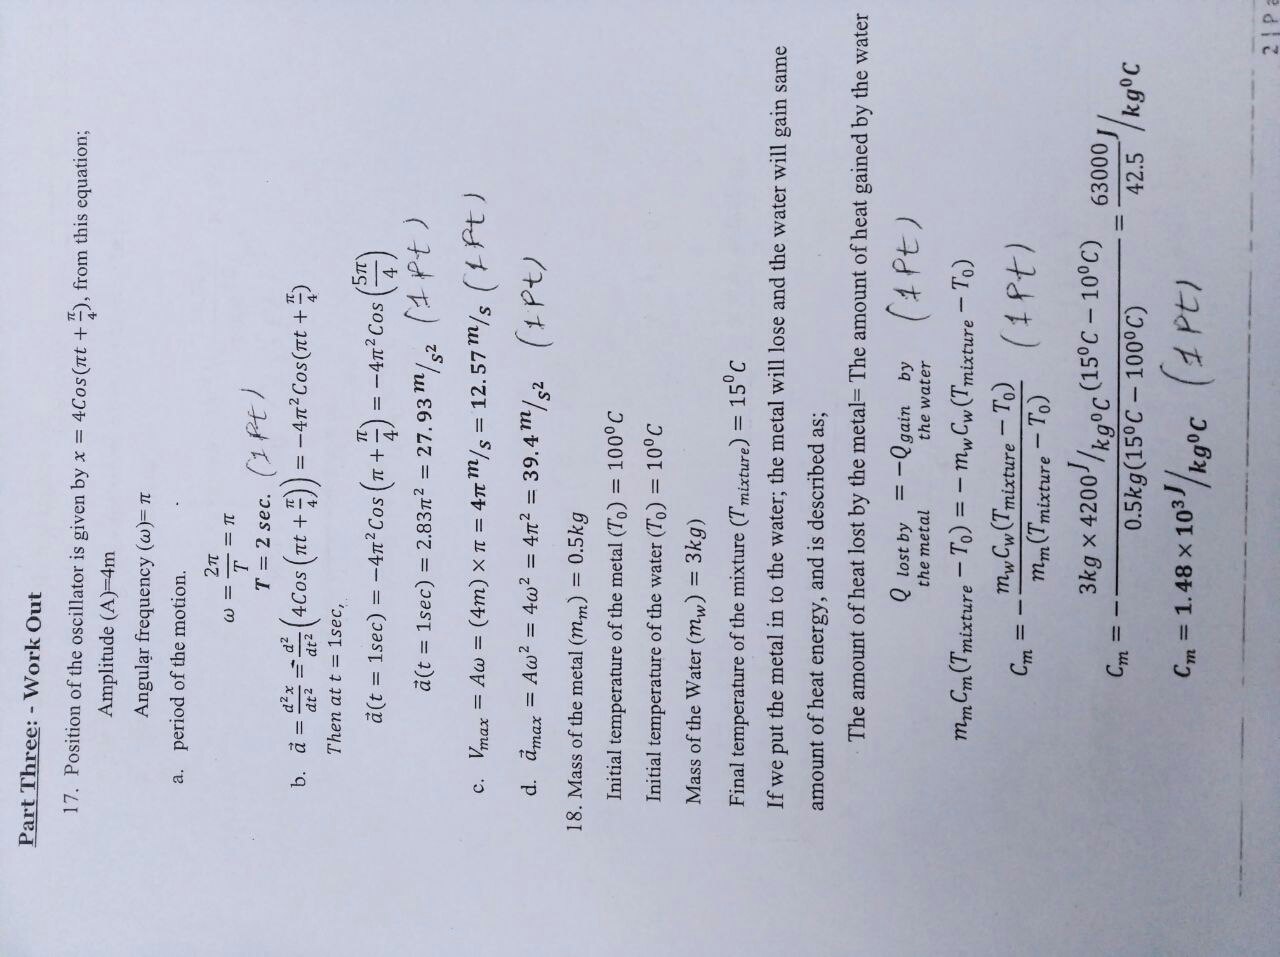 Part Three: - Work Out
17. Position of the oscillator is given by x = 4Cos(πt + π/4), from this equation;
Amplitude (A)=4m
Angular frequency (ω)= π
a. period of the motion.
ω = 2π/T = π
T = 2 sec. (1 Pt)
b. a⃗ = d²x/dt² = d²/dt² (4Cos(πt + π/4)) = −4π²Cos(πt + π/4)
Then at t = 1sec,
a⃗(t = 1sec) = −4π²Cos(π + π/4) = −4π²Cos(5π/4)
a⃗(t = 1sec) = 2.83π² = 27.93 m/s² (1 Pt)
c. Vmax = Aω = (4m) × π = 4π m/s = 12.57 m/s (1 Pt)
d. a⃗max = Aω² = 4ω² = 4π² = 39.4 m/s² (1 Pt)
18. Mass of the metal (mm) = 0.5kg
Initial temperature of the metal (T0) = 100⁰C
Initial temperature of the water (T0) = 10⁰C
Mass of the Water (mw) = 3kg)
Final temperature of the mixture (Tmixture) = 15⁰C
If we put the metal in to the water; the metal will lose and the water will gain same
amount of heat energy, and is described as;
The amount of heat lost by the metal= The amount of heat gained by the water
Q lost by the metal = −Qgain by the water (1 Pt)
mmCm(Tmixture − T0) = − mwCw(Tmixture − T0)
Cm = − mwCw(Tmixture − T0)/mm(Tmixture − T0) (1 Pt)
Cm = − 3kg × 4200 J/kg⁰C (15⁰C − 10⁰C)/0.5kg(15⁰C − 100⁰C) = 63000/42.5 J/kg⁰C
Cm = 1.48 × 10³ J/kg⁰C (1 Pt)
2 | P a